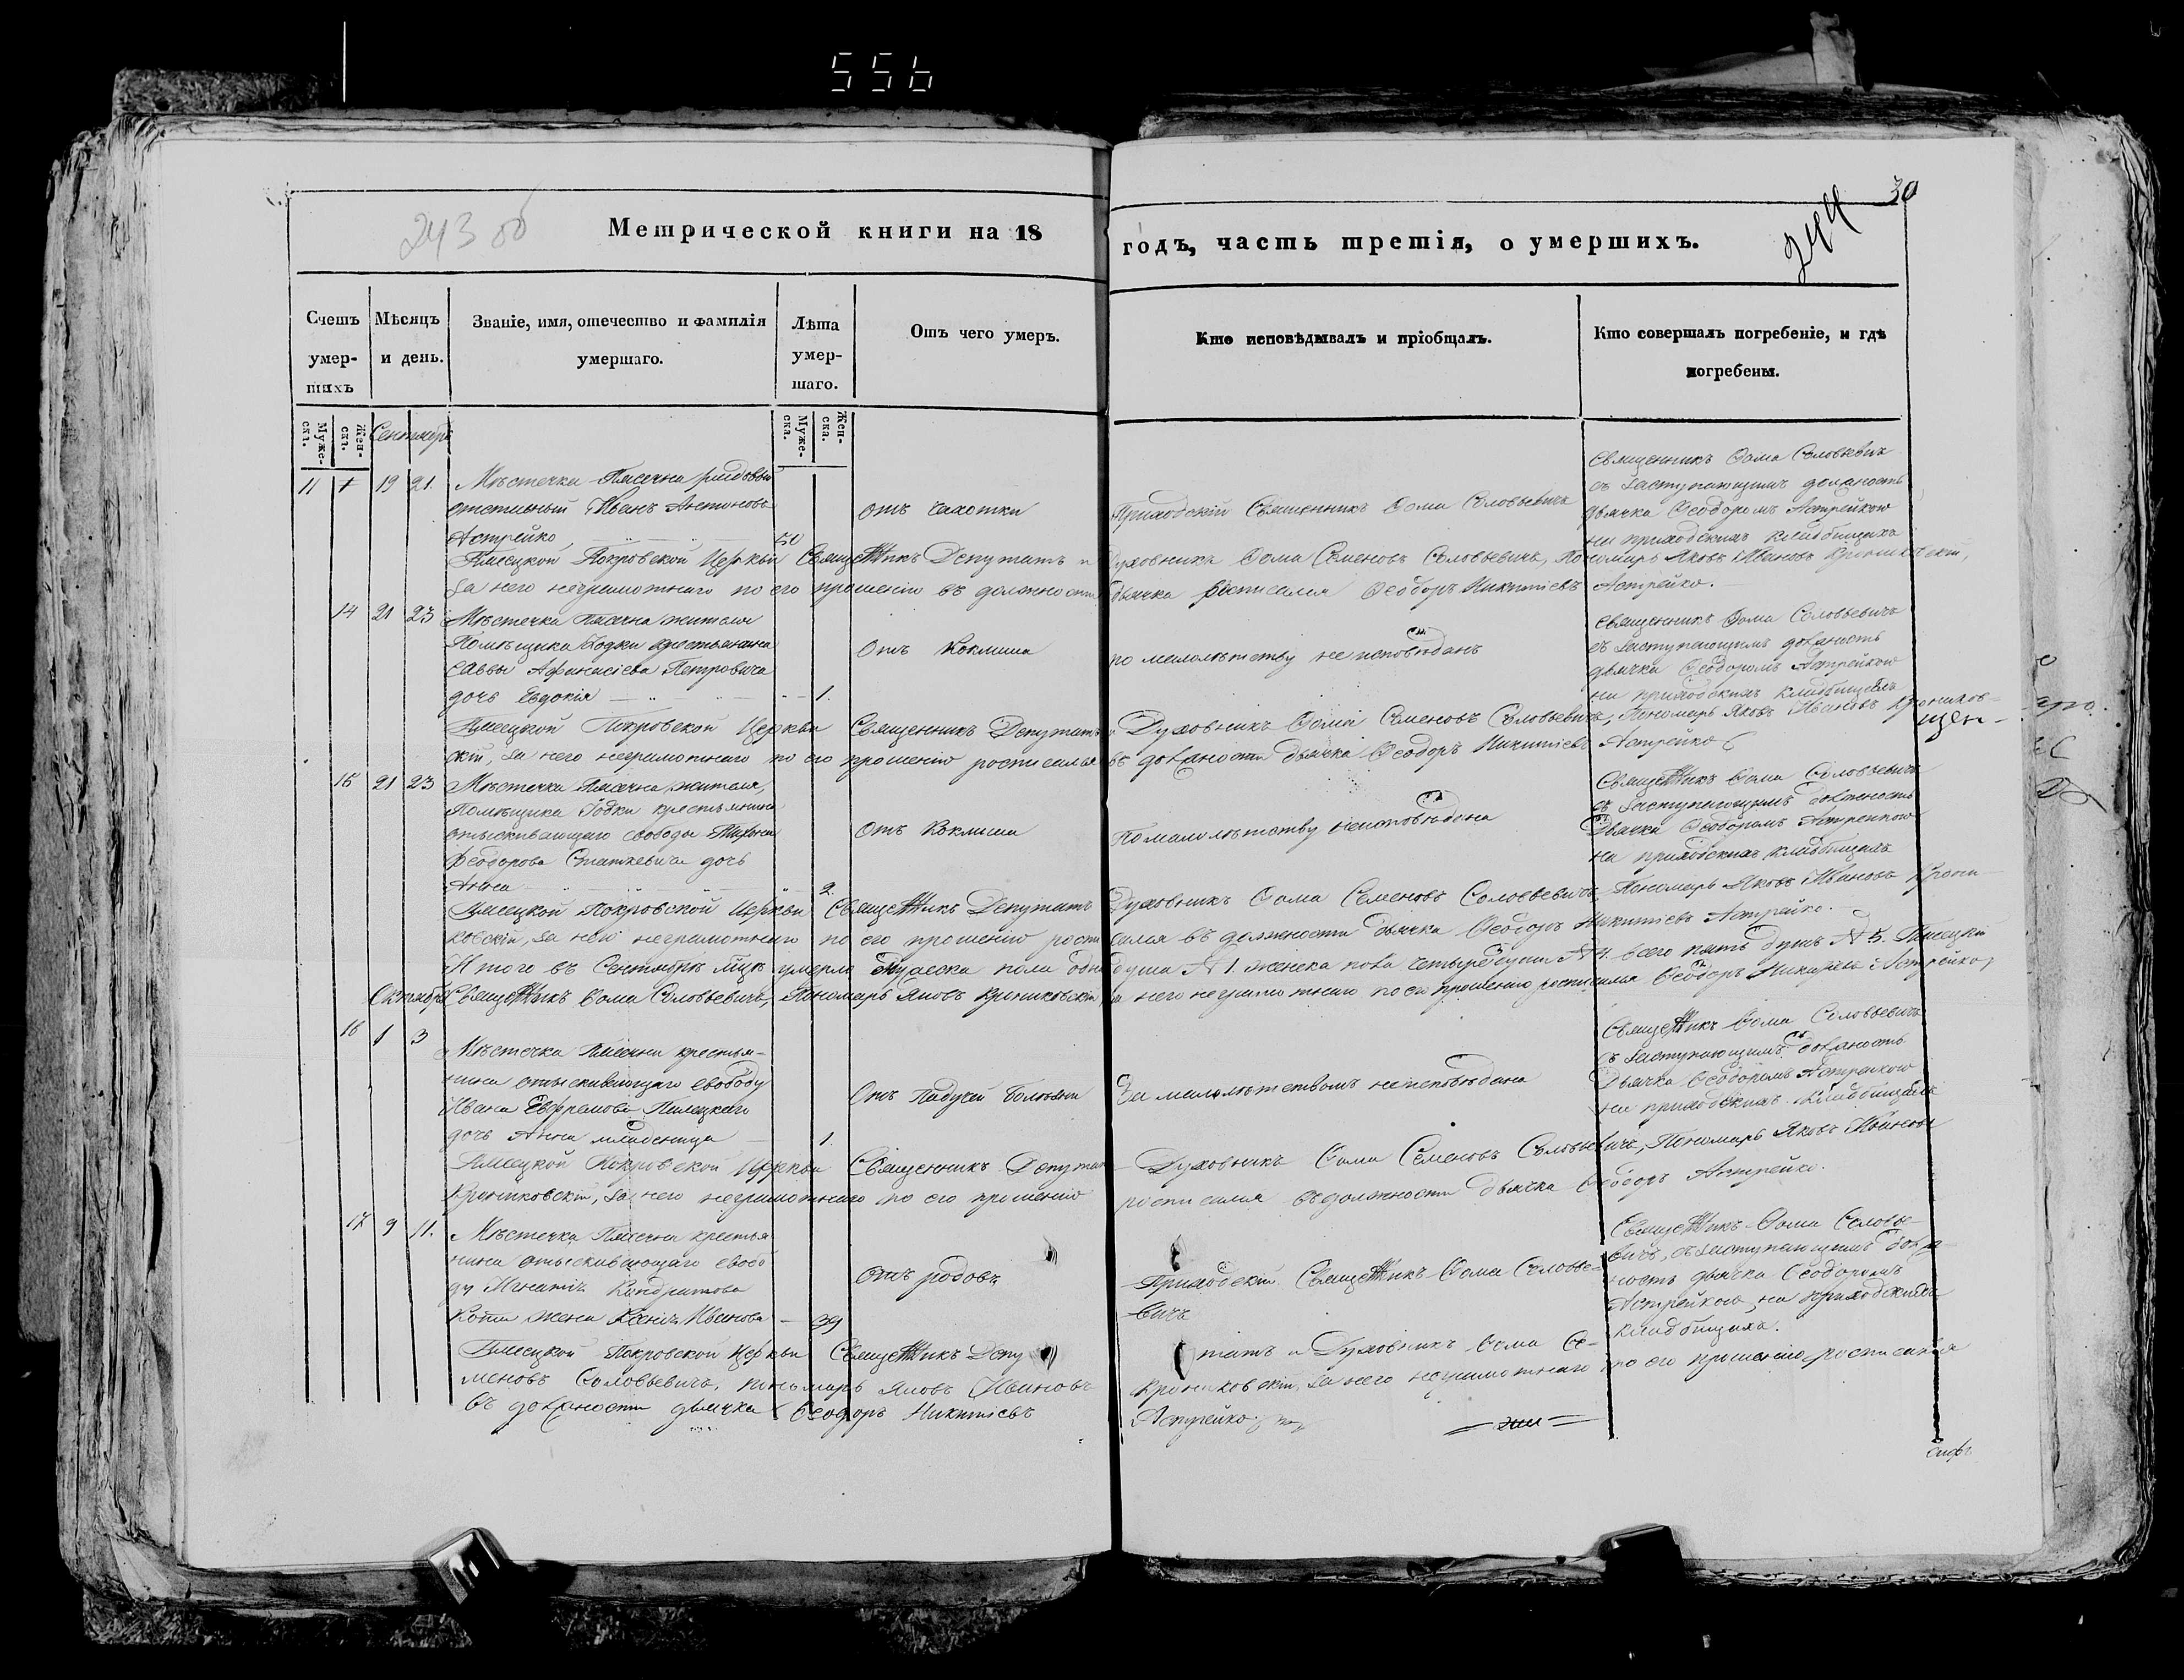 556
30
244
243 об
Метрической книги на 18 годъ, часть третія, о умершихъ.
Счетъ умер-шихъ
Мѣсяцъ и день.
Званіе, имя, отечество и фамилія умершаго.
Лѣта умер-шаго.
Отъ чего умеръ.
Кто исповѣдывалъ и пріобщалъ.
Кто совершалъ погребеніе, и гдѣ погребены.
Муже-ска.
Жен-ска.
Муже-ска.
Жен-ска.
Сентября
11 19 21.
Мѣстечка
отставный Иванъ Антоновъ
Астрейко, 50
отъ чахотки
Приходскій Священникъ Ѳома Соловьевичъ
Священникъ Ѳома Соловьевичъ
съ заступающимъ должность
дьячка Ѳеодоромъ Астрейкою
на приходскихъ кладбищахъ
Покровской Церкви Священникъ Депутатъ и Духовникъ Ѳома Семеновъ Соловьевичъ, Пономарь Яковъ Ивановъ
за него неграмотнаго по его прошенію въ должности дьячка росписался Ѳеодоръ Никитіевъ Астрейко.
14 21 23
Мѣстечка жителя
Помѣщика крестьянина
Саввы Афанасіева Петровича
дочь Евдокія 1.
Отъ Коклюша
по малолѣтству не исповѣдана
Священникъ Ѳома Соловьевичъ
съ заступающимъ должность
дьячка Ѳеодоромъ Астрейкою
на приходскихъ кладбищахъ
Покровской Церкви Священникъ Депутатъ и Духовникъ Ѳома Семеновъ Соловьевичъ, Пономарь Яковъ Ивановъ
скій, за него неграмотнаго по его прошенію росписался въ должности дьячка Ѳеодоръ Никитіевъ Астрейко
15 21 23
Мѣстечка жителя,
Помѣщика крестьянина
отыскивающаго свободы
Ѳеодорова Статкевича дочь
Анна 2.
Отъ Коклюша
По малолѣтству неисповѣдена
Священникъ Ѳома Соловьевичъ
съ заступающимъ должность
Дьячка Ѳеодоромъ Астрейкою
на приходскихъ кладбищахъ
Покровской Церкви Священникъ Депутатъ Духовникъ Ѳома Семеновъ Соловьевичъ, Пономарь Яковъ Ивановъ
ковскій, за него неграмотнаго по его прошенію росписался въ должности дьячка Ѳеодоръ Никитіевъ Астрейко.
Итого въ Сентябрѣ мцѣ умерло мужеска пола одна душа № 1. женска пола четыре души № 4. всего пять душъ № 5.
Октября Священникъ Ѳома Соловьевичъ, Пономарь Яковъ за него неграмотнаго по его прошенію росписался Ѳеодоръ Никитіевъ Астрейко
16 1 3
Мѣстечка крестья-
нина отыскивающаго свободу
Ивана Ефремова
дочь Анна младеница 1.
Отъ Падучей болѣзни
За малолѣтствомъ неисповѣдана
Священникъ Ѳома Соловьевичъ
съ заступающимъ должность
Дьячка Ѳеодоромъ Астрейкою
на приходскихъ кладбищахъ
Покровской Церкви Священникъ Депутатъ Духовникъ Ѳома Семеновъ Соловьевичъ, Пономарь Яковъ Ивановъ
за него неграмотнаго по его прошенію росписался въ должности дьячка Ѳеодоръ Астрейко.
17 9 11.
Мѣстечка крестья
нина отыскивающаго свобо
ду Игнатія Кондратова
жена Ксенія Иванова 39
Отъ родовъ
Приходскій Священникъ Ѳома Соловье-
вичъ
Священникъ Ѳома Соловье-
вичъ, съ заступающимъ долж-
ность дьячка Ѳеодоромъ
Астрейкою, на приходскихъ
кладбищахъ.
Покровской Церкви Священникъ Депу татъ и Духовникъ Ѳома Се-
меновъ Соловьевичъ, пономарь Яковъ Ивановъ за него неграмотнаго по его прошенію росписался
въ должности дьячка Ѳеодоръ Никитіевъ Астрейко